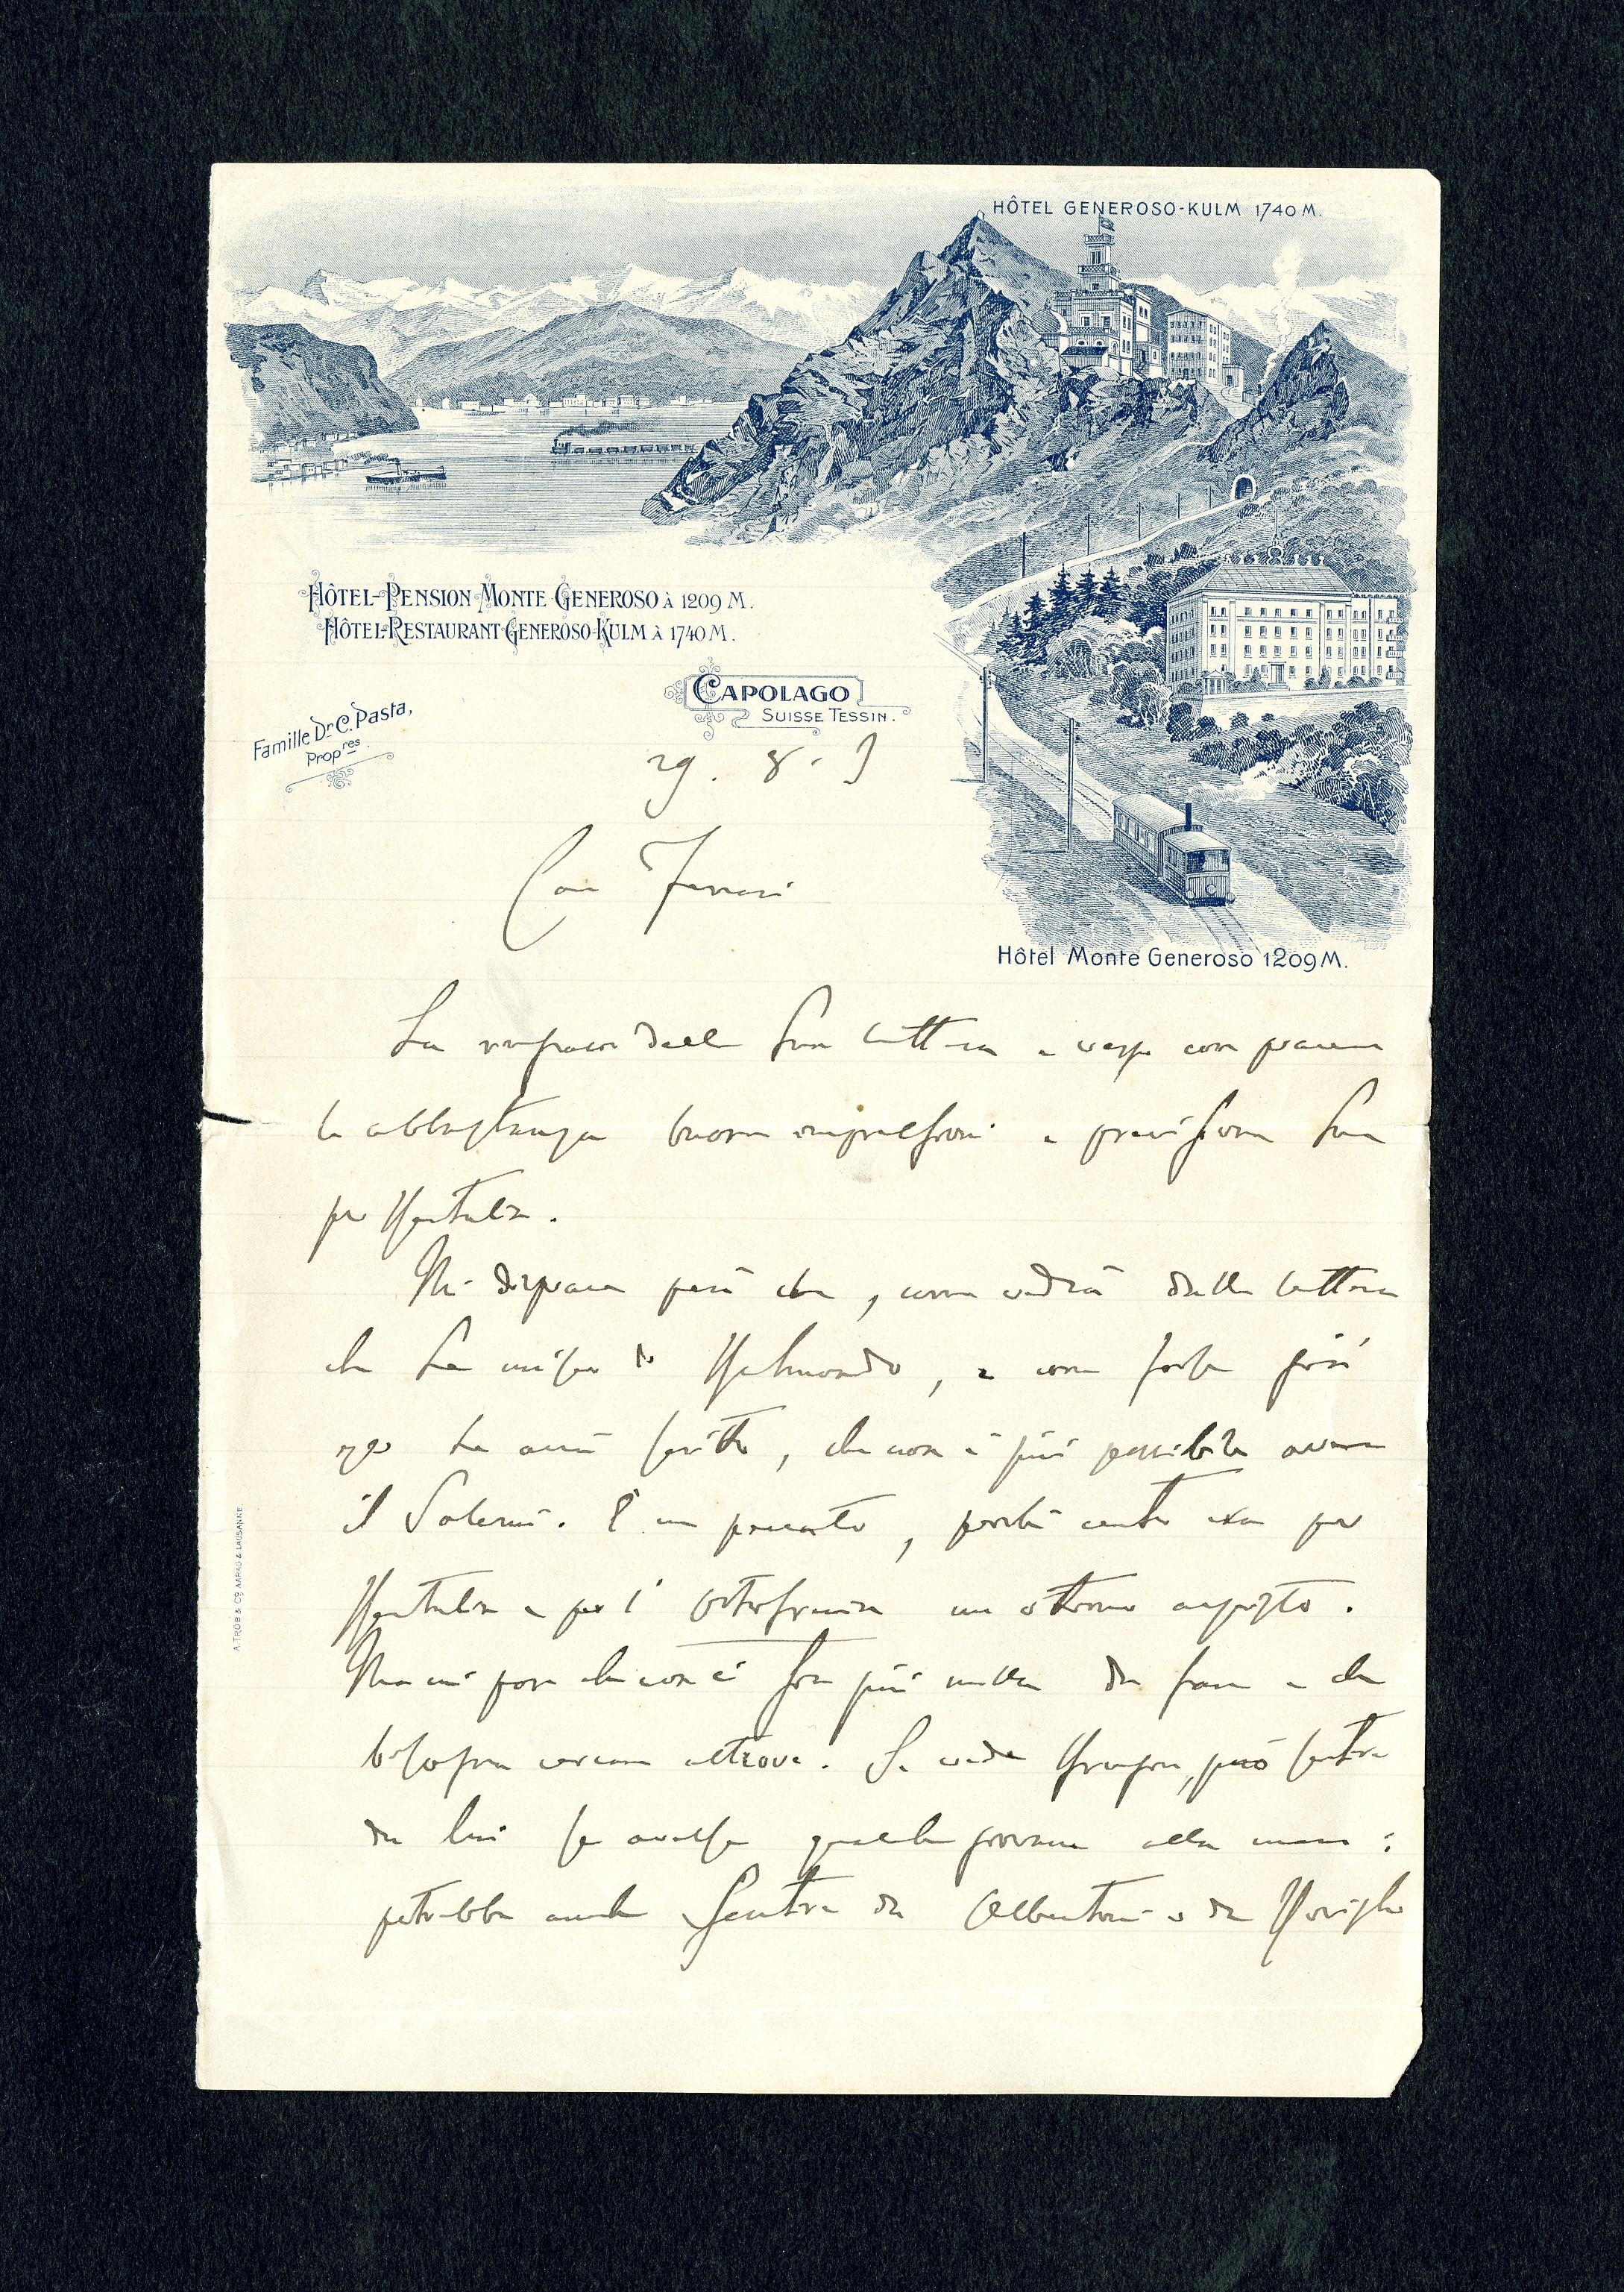 HÔTEL GENEROSO-KULM 1740 M.
HÔTEL-PENSION MONTE GENEROSO À 1209 M.
HÔTEL-RESTAURANT GENEROSO-KULM À 1740 M.
CAPOLAGO
SUISSE TESSIN.
Famille Dr C. Pasta,
Propres.
29. 8. 9
Caro Ferrari
Hôtel Monte Generoso 1209 M.
La ringrazio della Sua lettera e con piacere
le abbastanza buone impressioni e previsioni Sue
per
Mi dispiace però che, come vedrà dalla lettera
che Le unisco di, e come forse già
Le avrà scritto, che non è più possibile avere
il Salerni. È un peccato, perchè anche era per
e per l' un ottimo acquisto.
Ma mi pare che non ci sia più nulla da fare e che
bisogna cercare altrove. Se vede, può sentire
da lui se avesse qualche giovane alla mano:
potrebbe anche sentire da Albertoni o da
A. TRÜB & Cie AARAU & LAUSANNE